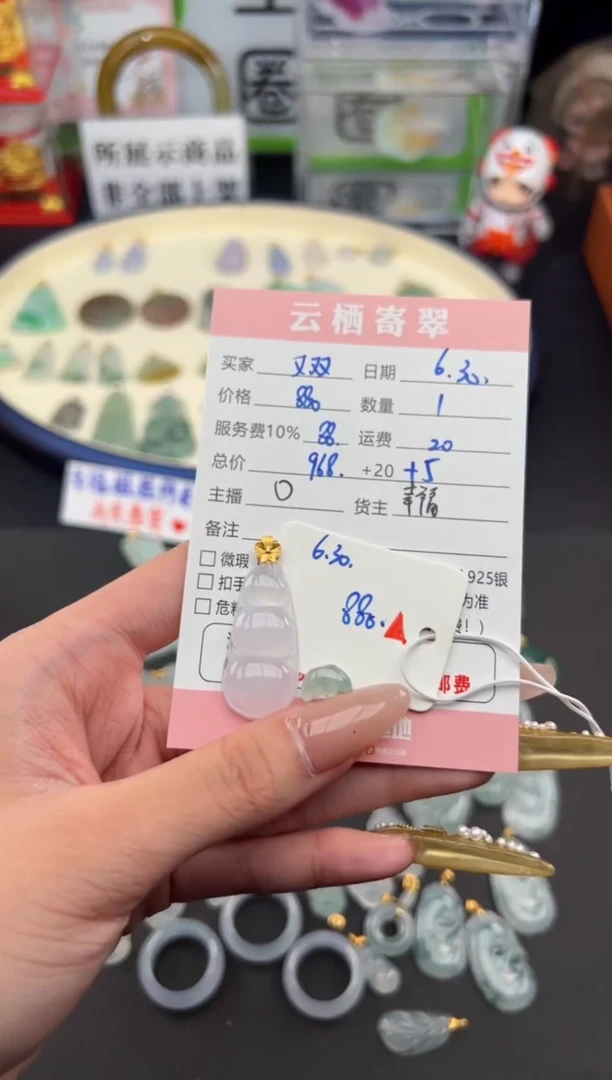 圈
所展示商品
非全部上架
云栖寄翠
买家 又双 日期 6.30.
价格 880 数量 1
服务费10% 88. 运费 20
总价 968. +20 +5
主播 O 货主 幸福
备注
微瑕 925银
扣手 为准
危料 费！)
6.30.
880.
邮费